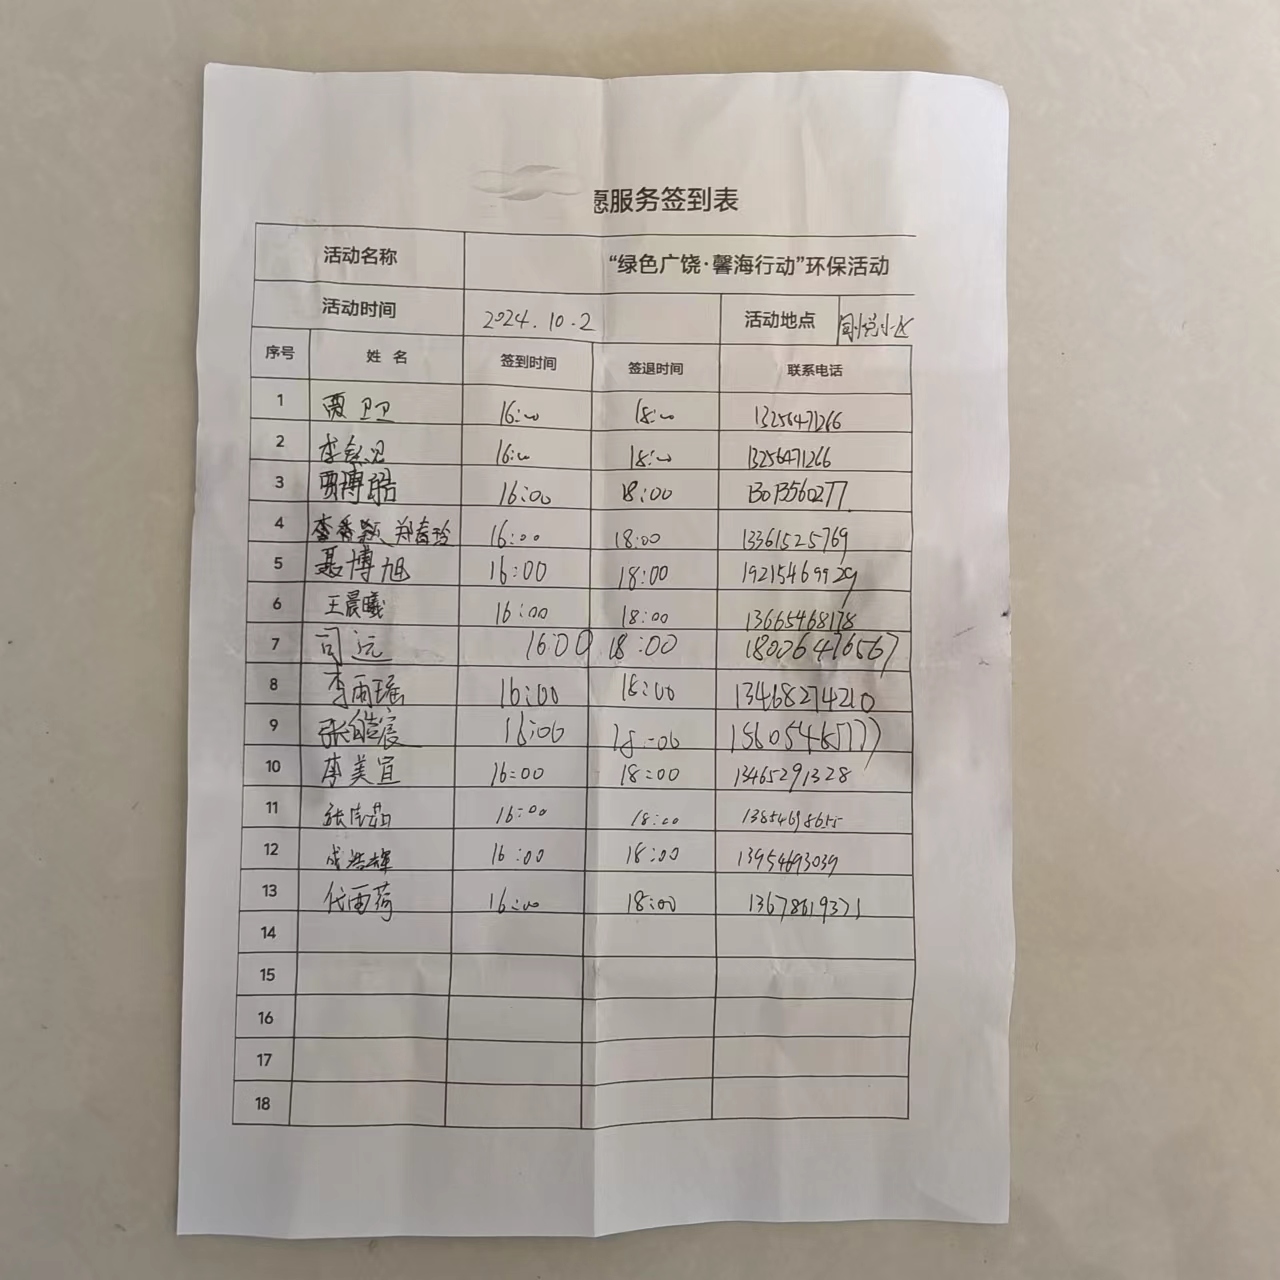 愿服务签到表
活动名称 “绿色广饶·馨海行动”环保活动
活动时间 2024.10.2 活动地点 同悦小区
序号 姓名 签到时间 签退时间 联系电话
1 贾卫卫 16:00 18:00 13256471266
2 李 16:00 18:00 13256471266
3 贾博皓 16:00 18:00 13013560277
4 李秀颖 郑春玲 16:00 18:00 13361525769
5 聂博旭 16:00 18:00 19215469929
6 王晨曦 16:00 18:00 13665468178
7 司远 16:00 18:00 18006476567
8 李雨瑶 16:00 18:00 13468274210
9 张皓宸 16:00 18:00 15605465777
10 李美宜 16:00 18:00 13465291328
11 张 16:00 18:00 13854698655
12 成浩辉 16:00 18:00 13954693039
13 代雨荷 16:00 18:00 13678619371
14
15
16
17
18